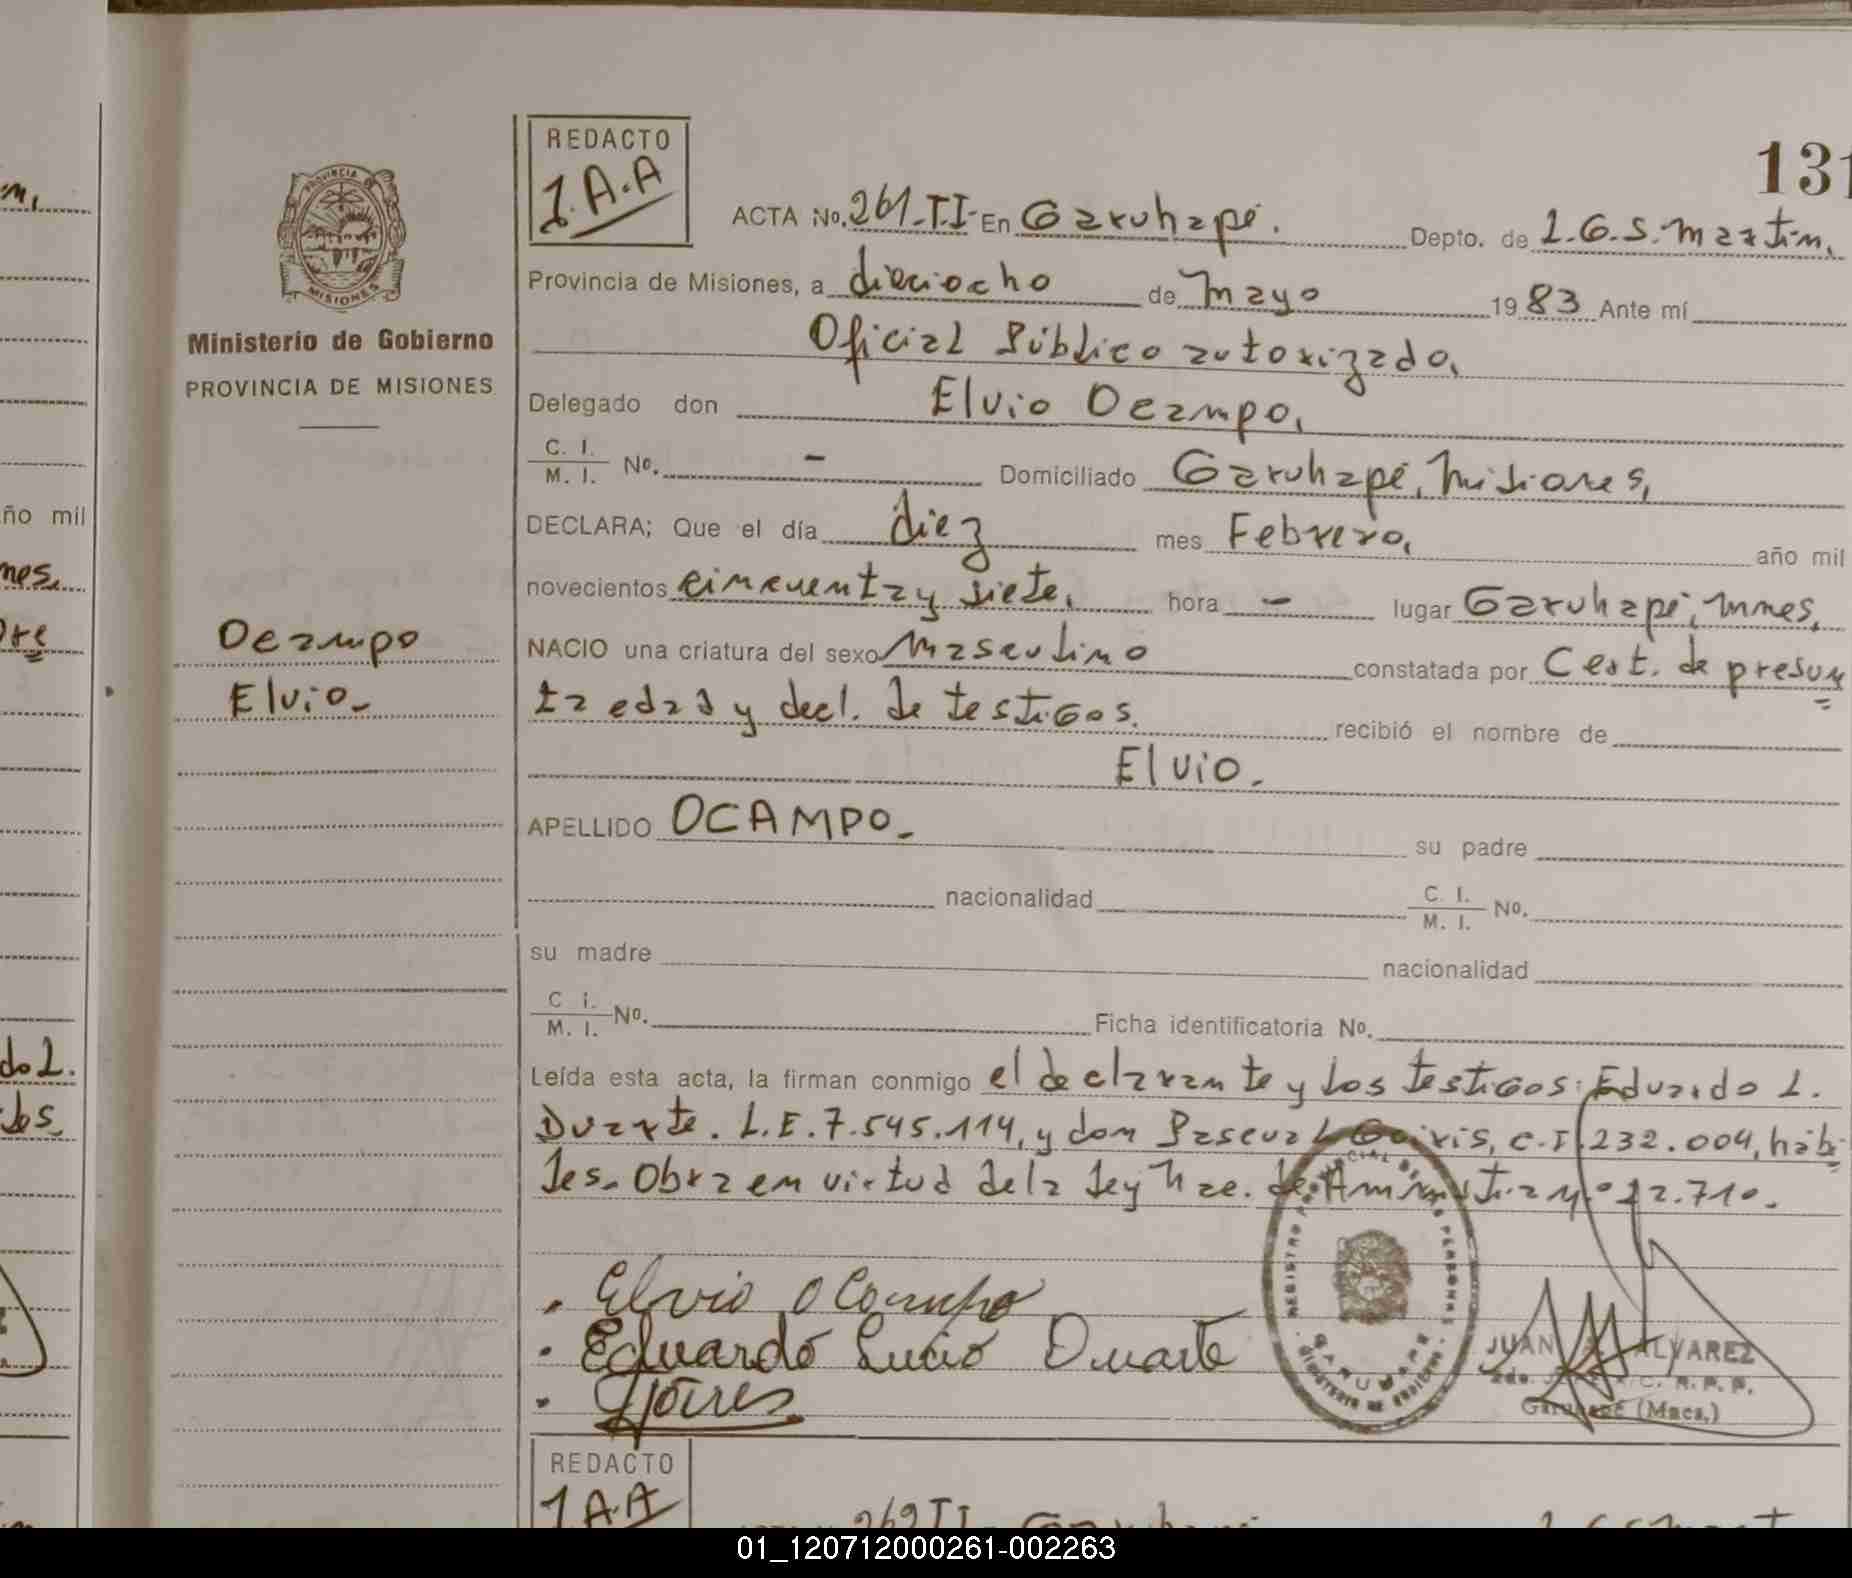 131
REDACTO
J.A.A
ACTA No. 261-T.I- En Garuhapé. Depto. de L.G.S.martín,
Provincia de Misiones, a dieciocho de mayo 1983 Ante mí
Oficial Público autorizado,
Delegado don Elvio Ocampo,
C. I. / M. I. No. - Domiciliado Garuhapé, misiones,
DECLARA; Que el día diez mes Febrero, año mil
novecientos cincuenta y siete, hora - lugar Garuhapé, mnes,
NACIO una criatura del sexo masculino constatada por Cert. de presun
ta edad y decl. de testigos. recibió el nombre de
Elvio.
APELLIDO OCAMPO. su padre
nacionalidad C. I. / M. I. No.
su madre nacionalidad
C i. / M. I. No. Ficha identificatoria No.
Leída esta acta, la firman conmigo el declarante y los testigos: Eduardo L.
Duarte. L.E.7.545.114, y don Pascual C.I. 232.004, hábi
les. Obra en virtud de la ley Nac. de Amnistia nº 22.710.
Elvio Ocampo
Eduardo Lucio Duarte
JUAN ALVAREZ
Garuhapé (Mnes.)
PROVINCIA DE
MISIONES
Ministerio de Gobierno
PROVINCIA DE MISIONES
Ocampo
Elvio-
ño mil
nes.
do L.
les
REDACTO
J.A.A
262 TI
01_120712000261-002263